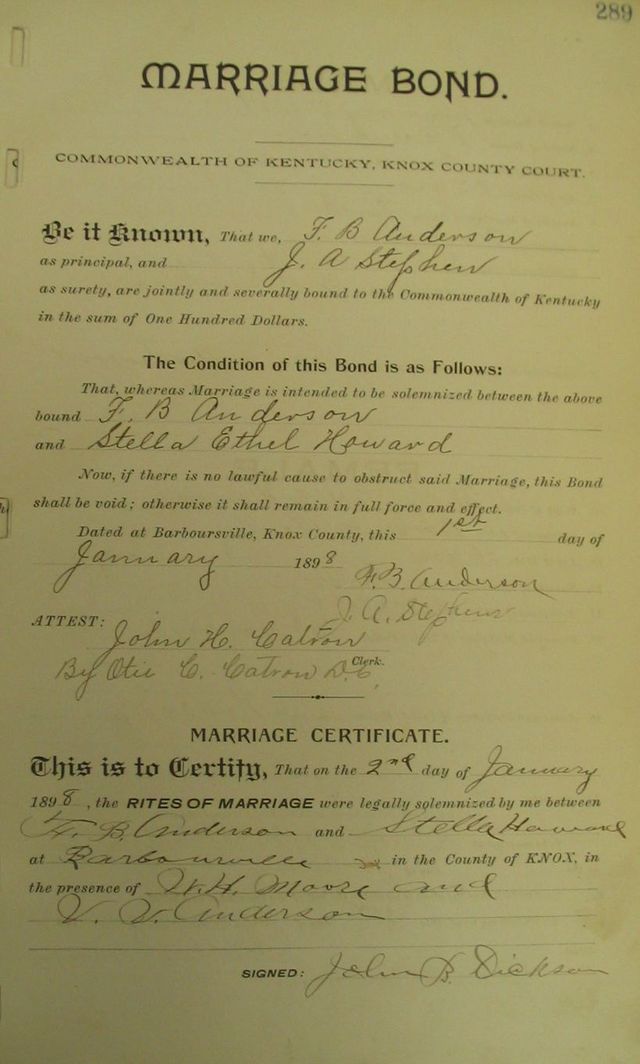 289
MARRIAGE BOND.
COMMONWEALTH OF KENTUCKY, KNOX COUNTY COURT.
Be it Known, That we, F. B Anderson
as principal, and J. A Stephen
as surety, are jointly and severally bound to the Commonwealth of Kentucky
in the sum of One Hundred Dollars.
The Condition of this Bond is as Follows:
That, whereas Marriage is intended to be solemnized between the above
bound F. B Anderson
and Stella Ethel Howard
Now, if there is no lawful cause to obstruct said Marriage, this Bond
shall be void; otherwise it shall remain in full force and effect.
Dated at Barboursville, Knox County, this 1st day of
January 1898
F. B. Anderson
J. A. Stephens
ATTEST:
John H. Catron
By Otie C. Catron D.C. Clerk.
MARRIAGE CERTIFICATE.
This is to Certify, That on the 2nd day of January
1898, the RITES OF MARRIAGE were legally solemnized by me between
F. B. Anderson and Stella Howard
at Barbourville in the County of KNOX, in
the presence of W. H. Moore and
V. V. Anderson
SIGNED: John B. Dickson